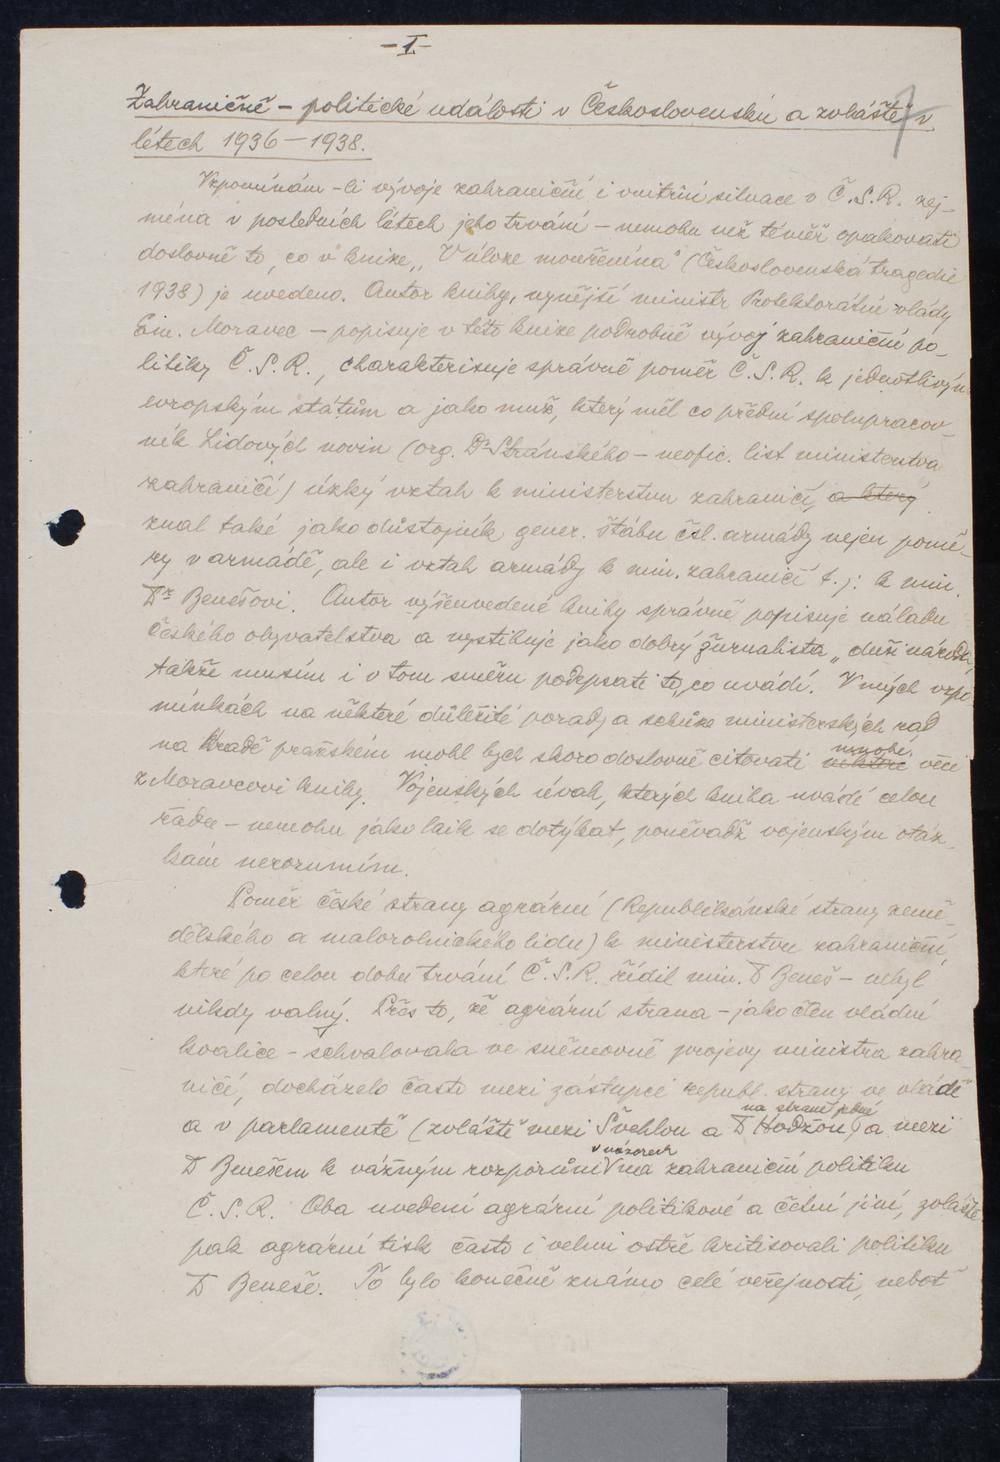 – I –
Zahraničně – politické události v Československu a zvláště v
létech 1936 – 1938.
Vzpomínám-li vývoje zahraniční i vnitřní situace v Č.S.R. zej-
ména v posledních létech jeho trvání – nemohu než téměř opakovati
doslovně to, co v knize „V úloze mouřenína" (Československá tragedie
1938) je uvedeno. Autor knihy, nynější ministr Protektorátní vlády
Em. Moravec – popisuje v této knize podrobně vývoj zahraniční po-
litiky Č.S.R., charakterisuje správně poměr Č.S.R. k jednotlivým
evropským státům a jako muž, který měl co přední spolupracov-
ník Lidových novin (org. Dr Stránského – neofic. list ministerstva
zahraničí) úzký vztah k ministerstvu zahraničí, a který
znal také jako důstojník gener. štábu čsl. armády nejen pomě-
ry v armádě, ale i vztah armády k min. zahraničí t.j: k min.
Dr Benešovi. Autor výšeuvedené knihy správně popisuje náladu
českého obyvatelstva a vystihuje jako dobrý žurnalista „duši národa,
takže musím i v tom směru podepsati to, co uvádí. V mých vzpo-
mínkách na některé důležité porady a schůze ministerských rad
na Hradě pražském mohl bych skoro doslovně citovati některé mnohé věci
z Moravcovi knihy. Vojenských úvah, kterých kniha uvádí celou
řadu – nemohu jako laik se dotýkat, poněvadž vojenským otáz-
kám nerozumím.
Poměr české strany agrární (Republikánské strany země-
dělského a malorolnického lidu) k ministerstvu zahraniční,
které po celou dobu trvání Č.S.R. řídil min. Dr Beneš – nebyl
nikdy valný. Přes to, že agrární strana – jako člen vládní
koalice – schvalovala ve sněmovně projevy ministra zahra-
ničí, docházelo často mezi zástupci republ. strany ve vládě
a v parlamentě (zvláště mezi Švehlou a Dr Hodžou) na straně jedné a mezi
Dr Benešem k vážným rozporům v názorech na zahraniční politiku
Č.S.R. Oba uvedení agrární politikové a četní jiní, zvláště
pak agrární tisk často i velmi ostře kritisovali politiku
Dr Beneše. To bylo konečně známo celé veřejnosti, neboť